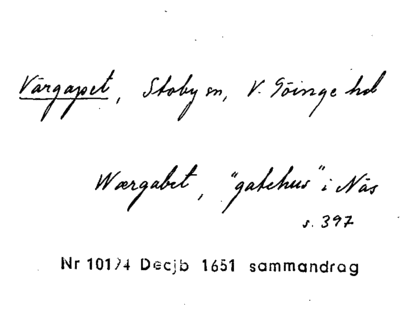 Värgapet, Stoby sn, V. Göinge hd
Wærgabet, "gatehus" i Näs
s. 397
Nr 10174 Decjb 1651 sammandrag